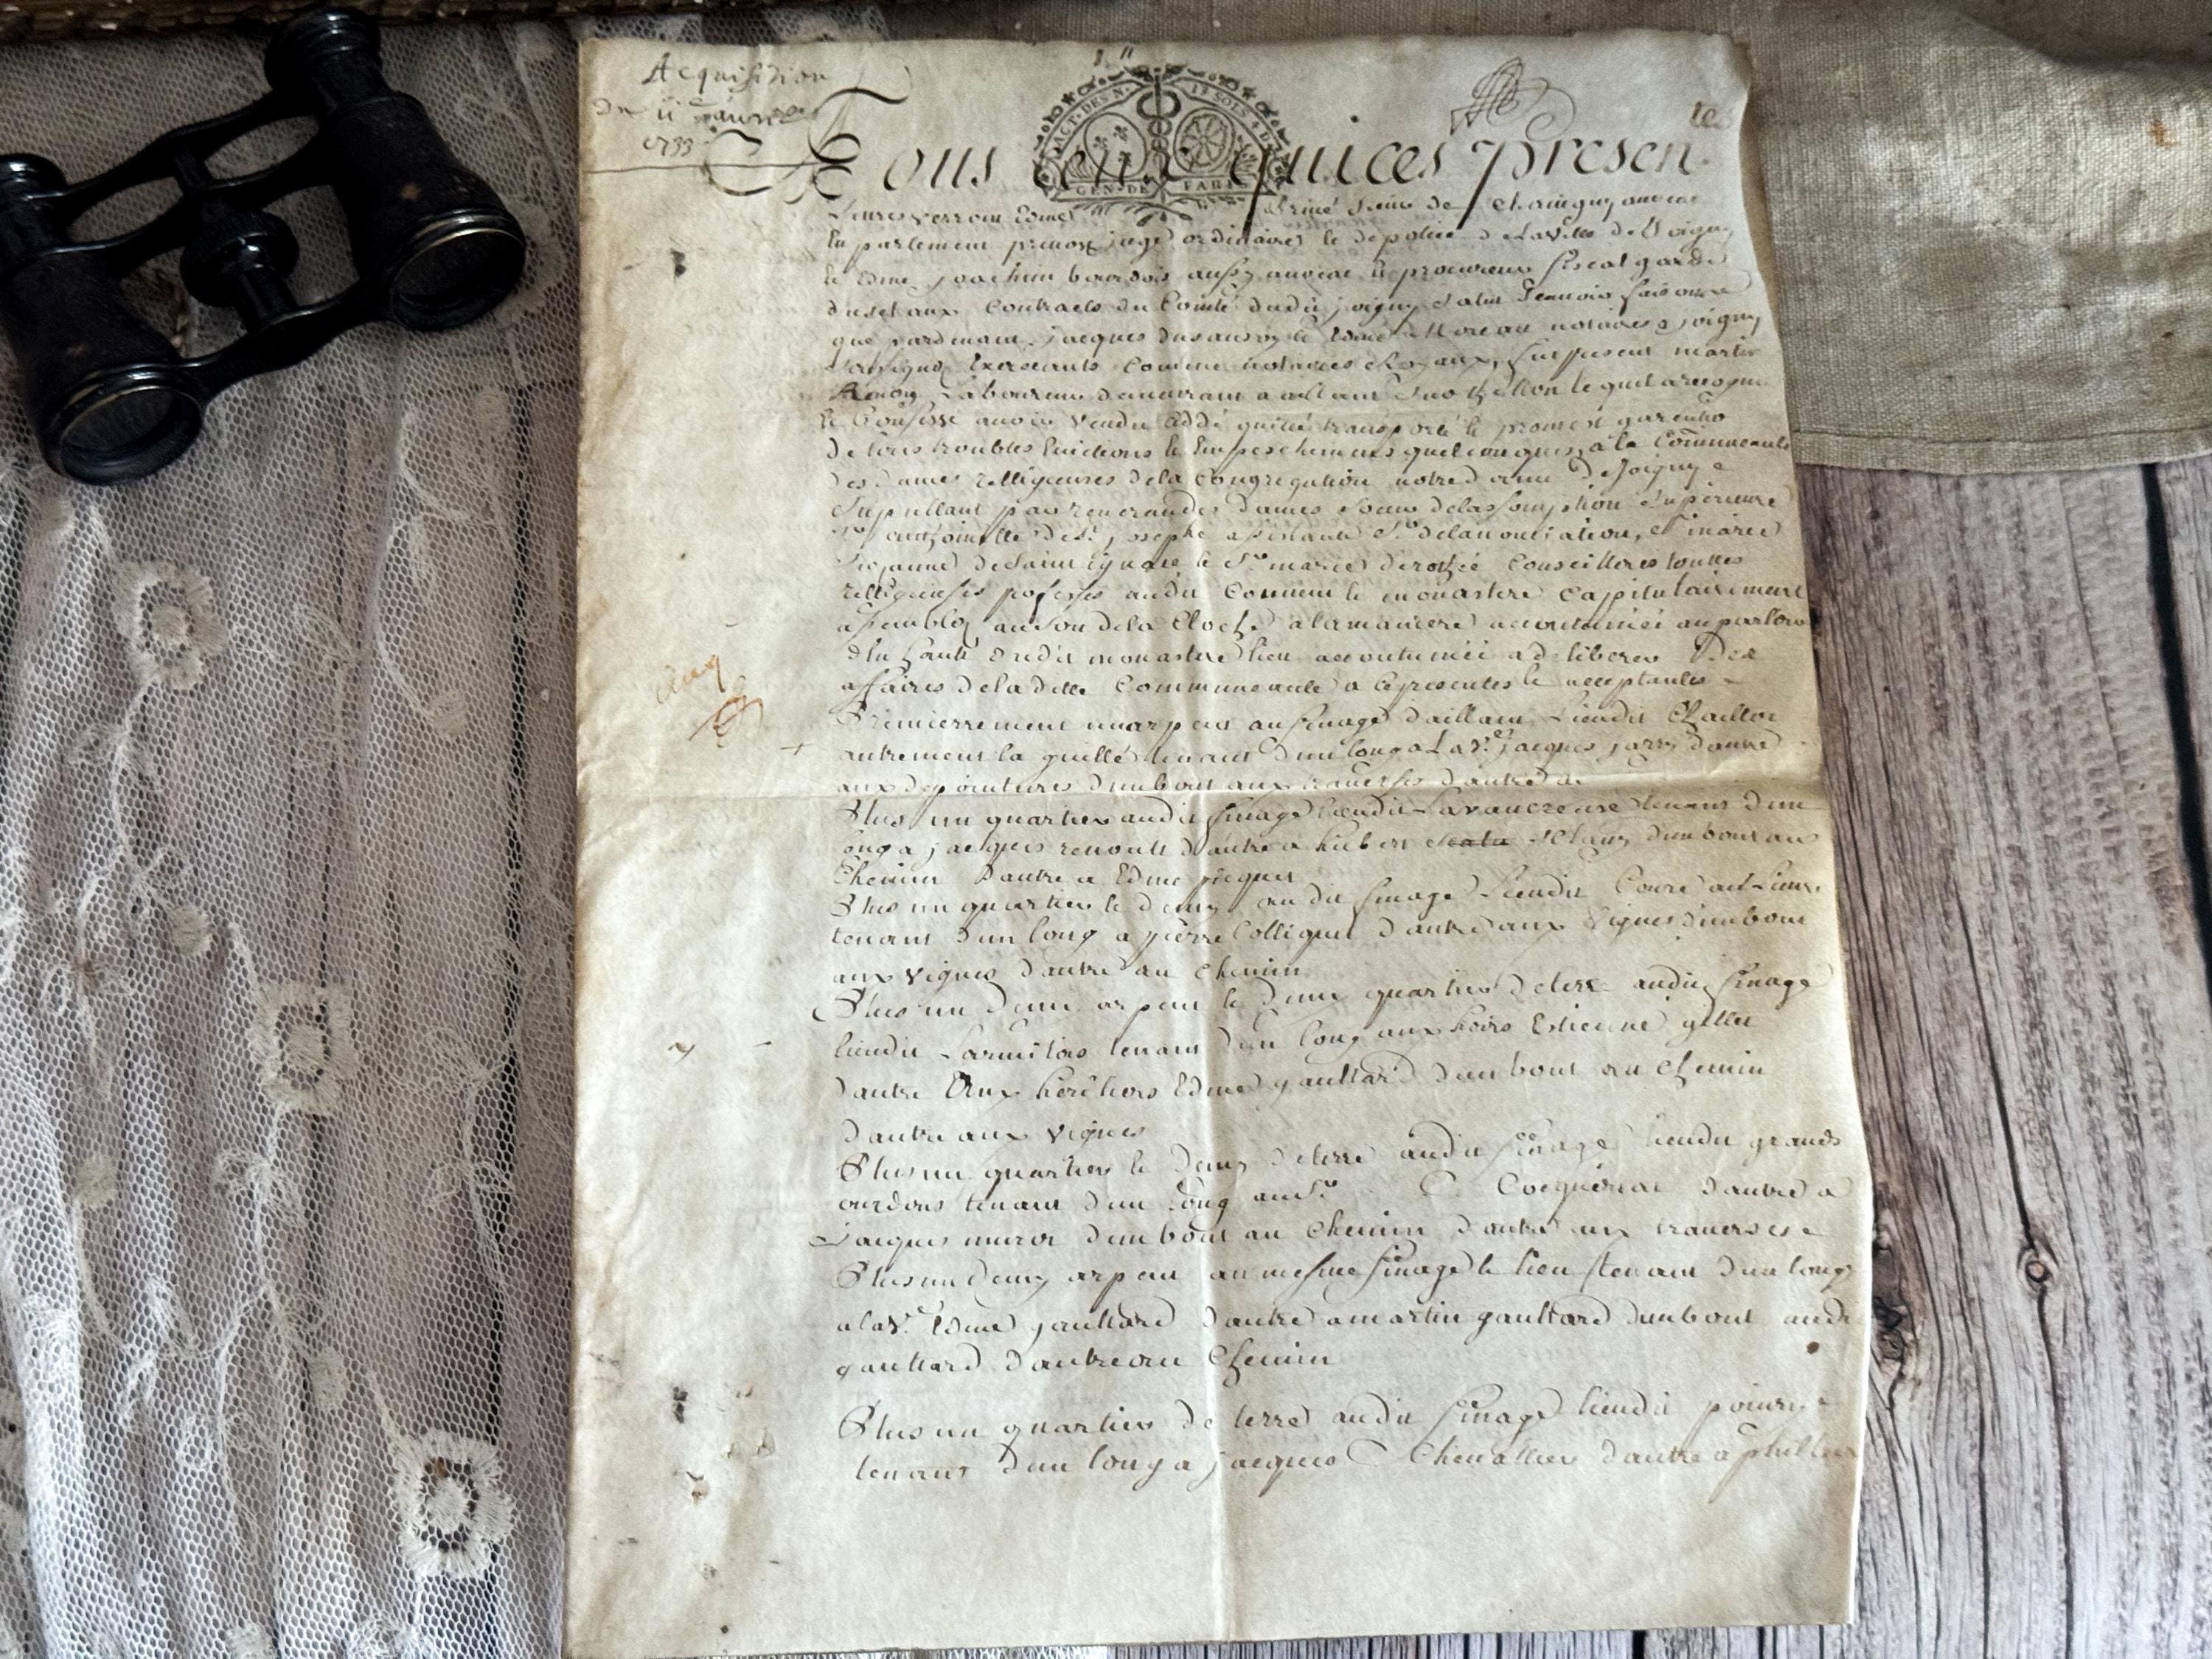 Acquisition
du 11 Janvier
1733
ACT. DES N. 13 SOLS 4 D.
GEN. DE PARIS
A Tous ceux qui ces presen
tes
Lettres verront Edme Sieur de Chamguy auocat
En parlement preuost juge ordinaire de police de La Ville de Joigny
Et Edme joachim bourdois aussy auocat procureur fiscal garde
du scel aux Contracts du Comté dudit joigny Salut Scauoir faisons
que pardeuant jacques Edme Moreau notaires a joigny
Soussignez Exerceants Comme notaires Royaux, fut present martin
Laboureur demeurant a aillant Sur thollon lequel a recognu
Et Confessé auoir vendu Ceddé quitté transporté Et promest garentir
de tous troubles Euictions Et Empeschemens quelconques, a la Communauté
des dames relligieuses de la Congregation notre dame de Joigny
Stipullant par reuerandes dames Soeur de lassomption Supérieure
de St. josephe assistante Sr. delanontiation, Et marie
de Saint ignace Et Sr. marie Conseilleres touttes
relligieuses professes audit Couuent Et monastere Capitulairement
assemblez au Son de la Cloche a la maniere accoutumée au parloir
dudit monastere lieu accoutumée a deliberer Des
affaires de la dette Communauté a ce presentes Et acceptantes
Premierrement un arpent au finage daillant Lieudit Chaillot
autrement la tenant d'un long a La Ve. jacques jarry dautre
aux depointures d'un bout aux trauerses dautre a
Plus un quartier audit finage Lieudit Lavaucreuse tenant d'un
long a jacques renoult dautre a hubert d'un bout au
Chemin Dautre a Edme picques
Plus un quartier Et demy audit finage Lieudit Coure au Lieure
tenant d'un long a pierre Colliquet dautre aux Vignes d'un bout
aux Vignes dautre au Chemin
Plus un demi arpent Et demi quartier de terre audit finage
lieudit tenant d'un long aux hoirs Estienne gillet
dautre Aux héritiers Edme gaultard d'un bout au Chemin
dautre aux Vignes
Plus un quartier Et demy de terre audit finage lieudit grands
ourdons tenant d'un Long au Sr. dautre a
Jacques d'un bout au Chemin dautre aux trauerses
Plus un demy arpent au mesme finage Et lieu tenant d'un long
a la Ve. Edme gaultard dautre a martin gaultard d'un bout audit
gaultard dautre au Chemin
Plus un quartier de terre audit finage lieudit
tenant d'un long a jacques Chevallier dautre a